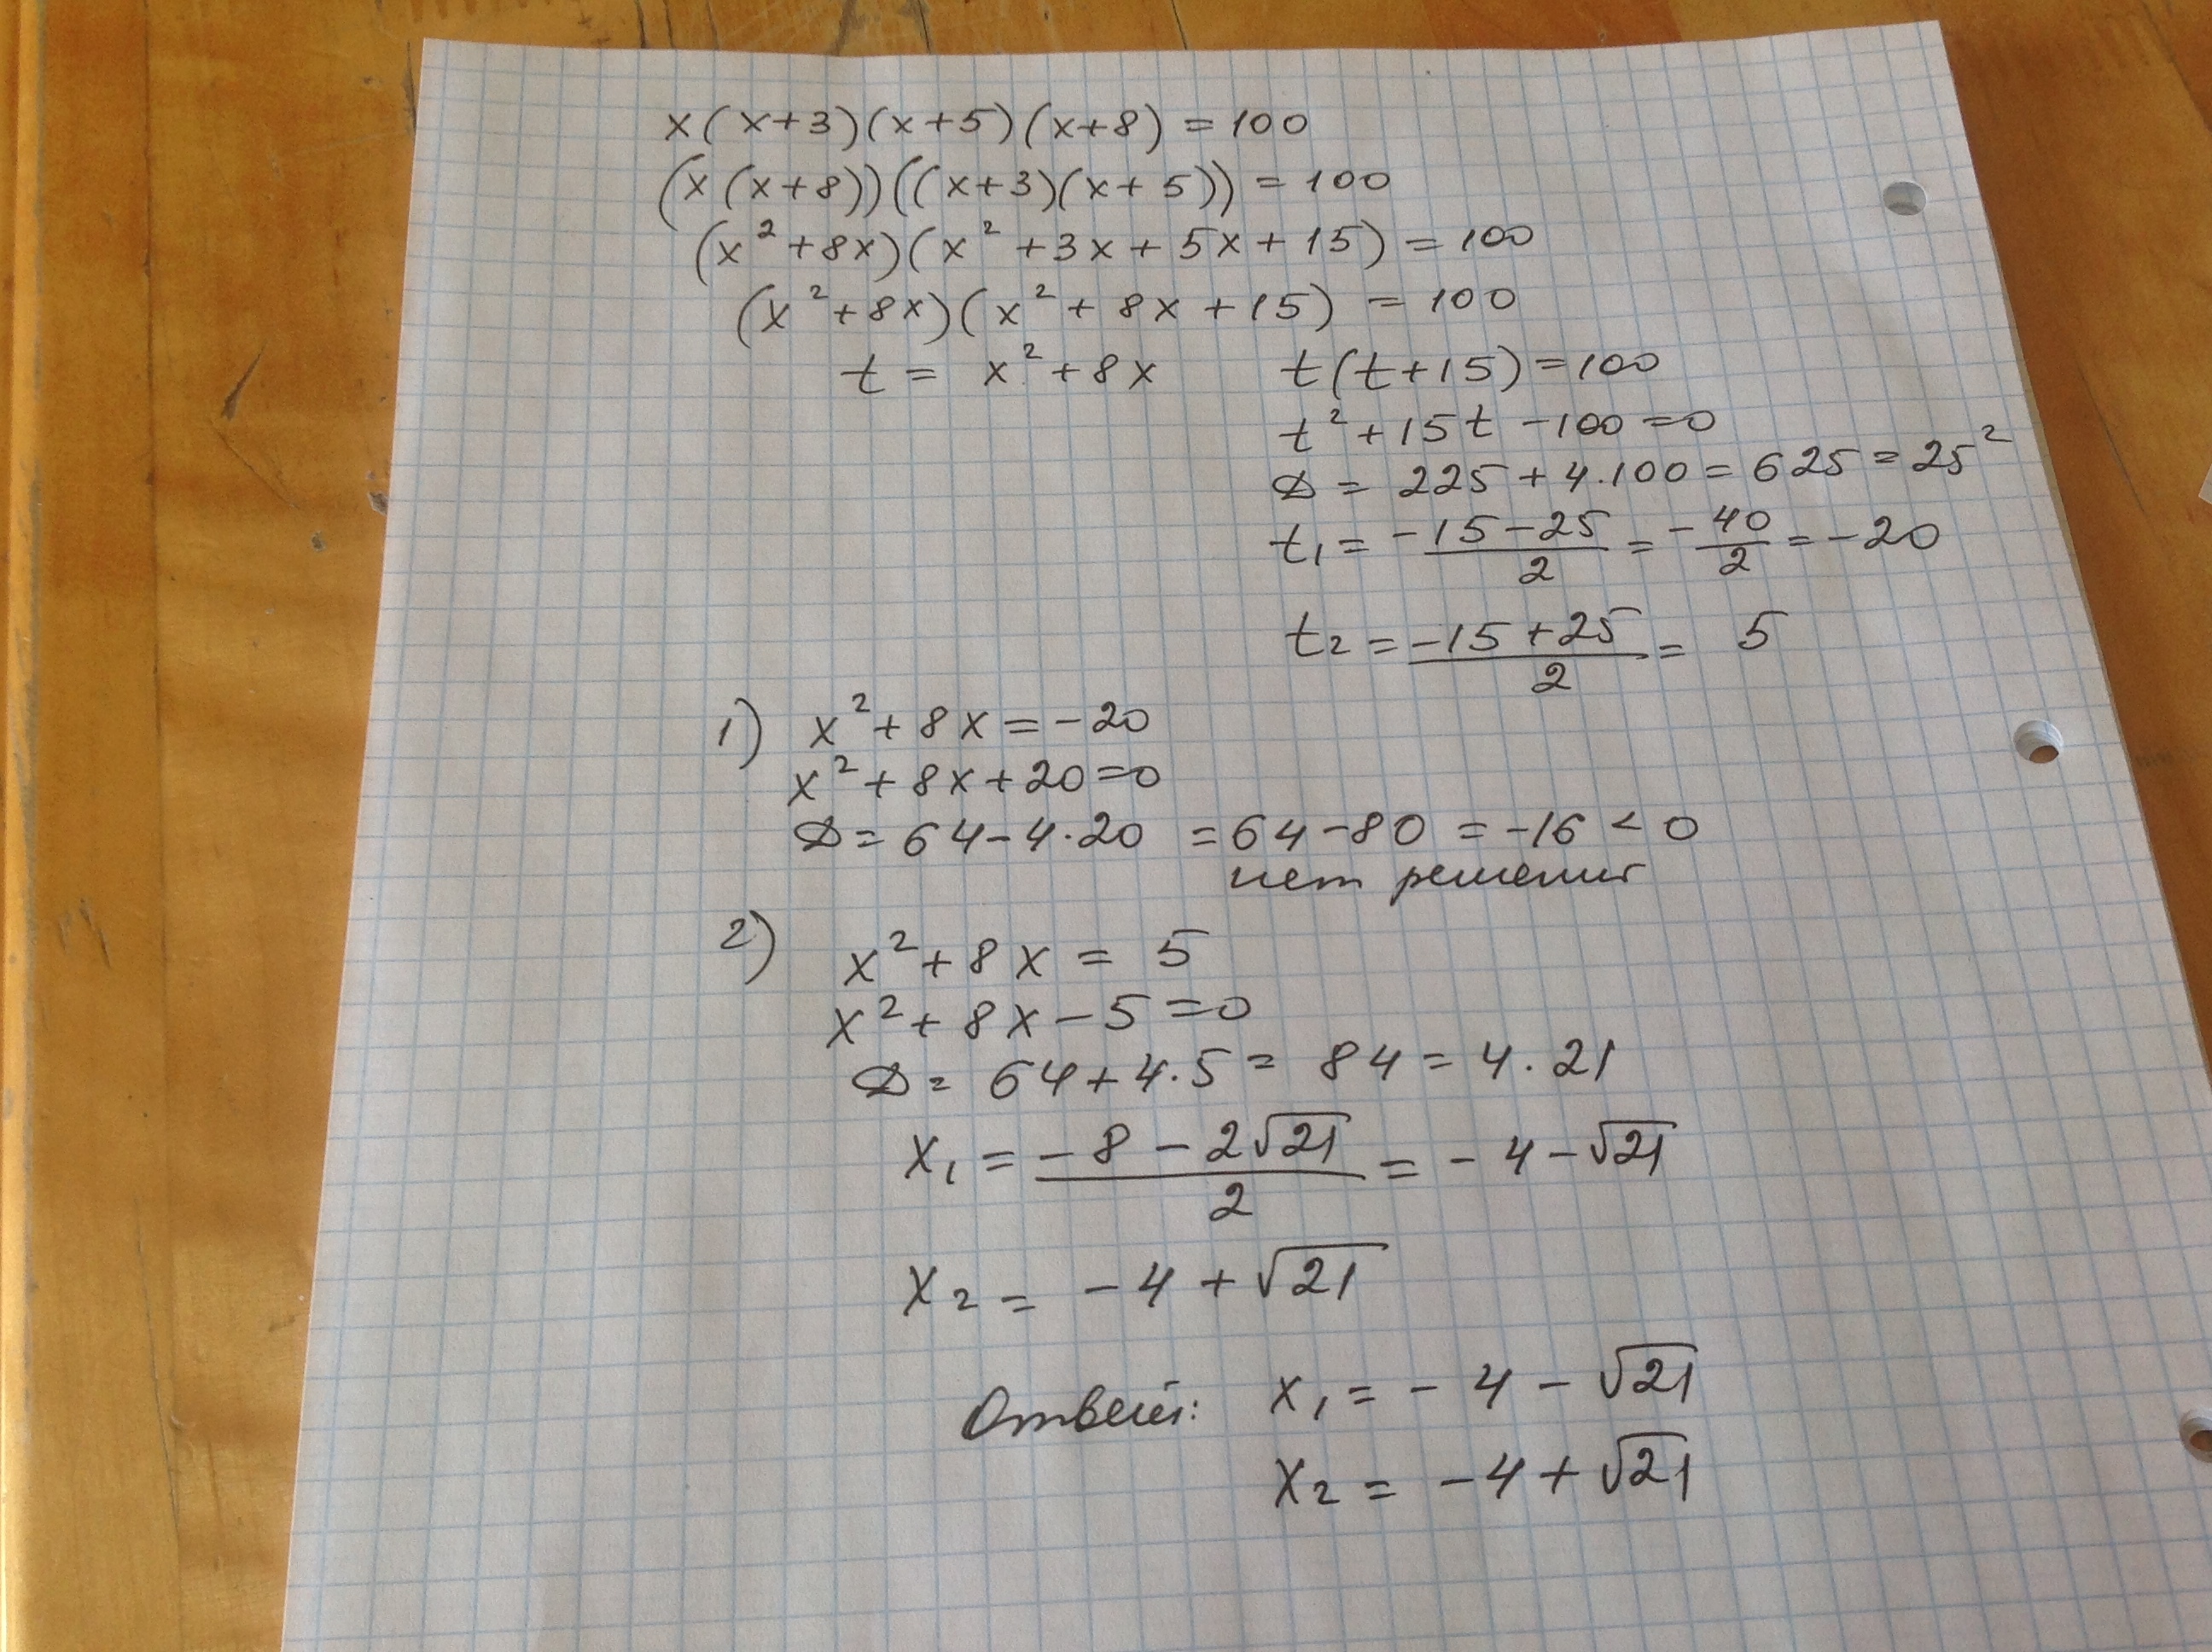 x(x+3)(x+5)(x+8) = 100
(x(x+8))((x+3)(x+5)) = 100
(x²+8x)(x²+3x+5x+15) = 100
(x²+8x)(x²+8x+15) = 100
t = x²+8x t(t+15) = 100
t²+15t-100=0
D = 225+4·100 = 625 = 25²
t₁ = (-15-25)/2 = -40/2 = -20
t₂ = (-15+25)/2 = 5
1) x²+8x=-20
x²+8x+20=0
D = 64-4·20 = 64-80 = -16 < 0
нет решения
2) x²+8x = 5
x²+8x-5=0
D = 64+4·5 = 84 = 4·21
x₁ = (-8-2√21)/2 = -4-√21
x₂ = -4+√21
Ответ: x₁ = -4-√21
x₂ = -4+√21